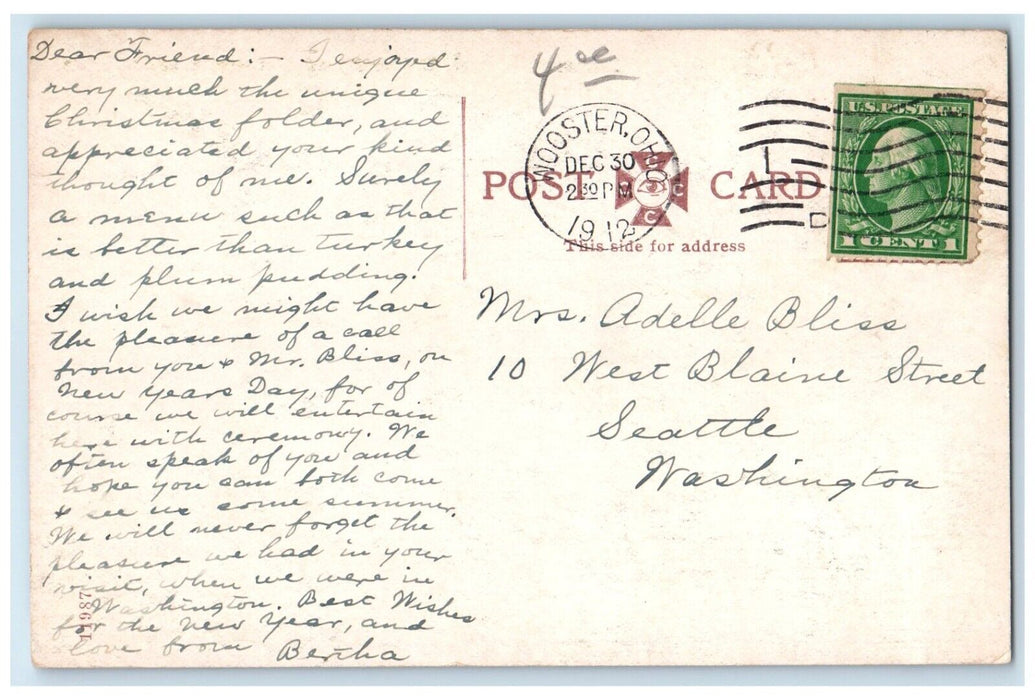 Dear Friend:- I enjoyed
very much the unique
Christmas folder, and
appreciated your kind
thought of me. Surely
a menu such as that
is better than turkey
and plum pudding.
I wish we might have
the pleasure of a call
from you & Mr. Bliss, on
New Years Day, for of
course we will entertain
here with ceremony. We
often speak of you and
hope you can both come
& see us some summer.
We will never forget the
pleasure we had in your
visit, when we were in
Washington. Best Wishes
for the New Year, and
love from Bertha
11987
4
WOOSTER, OHIO
DEC 30
2 30 PM
1912
POST CARD
C
C
C
This side for address
L
D
U.S. POSTAGE
1 CENT 1
Mrs. Adelle Bliss
10 West Blaine Street
Seattle
Washington